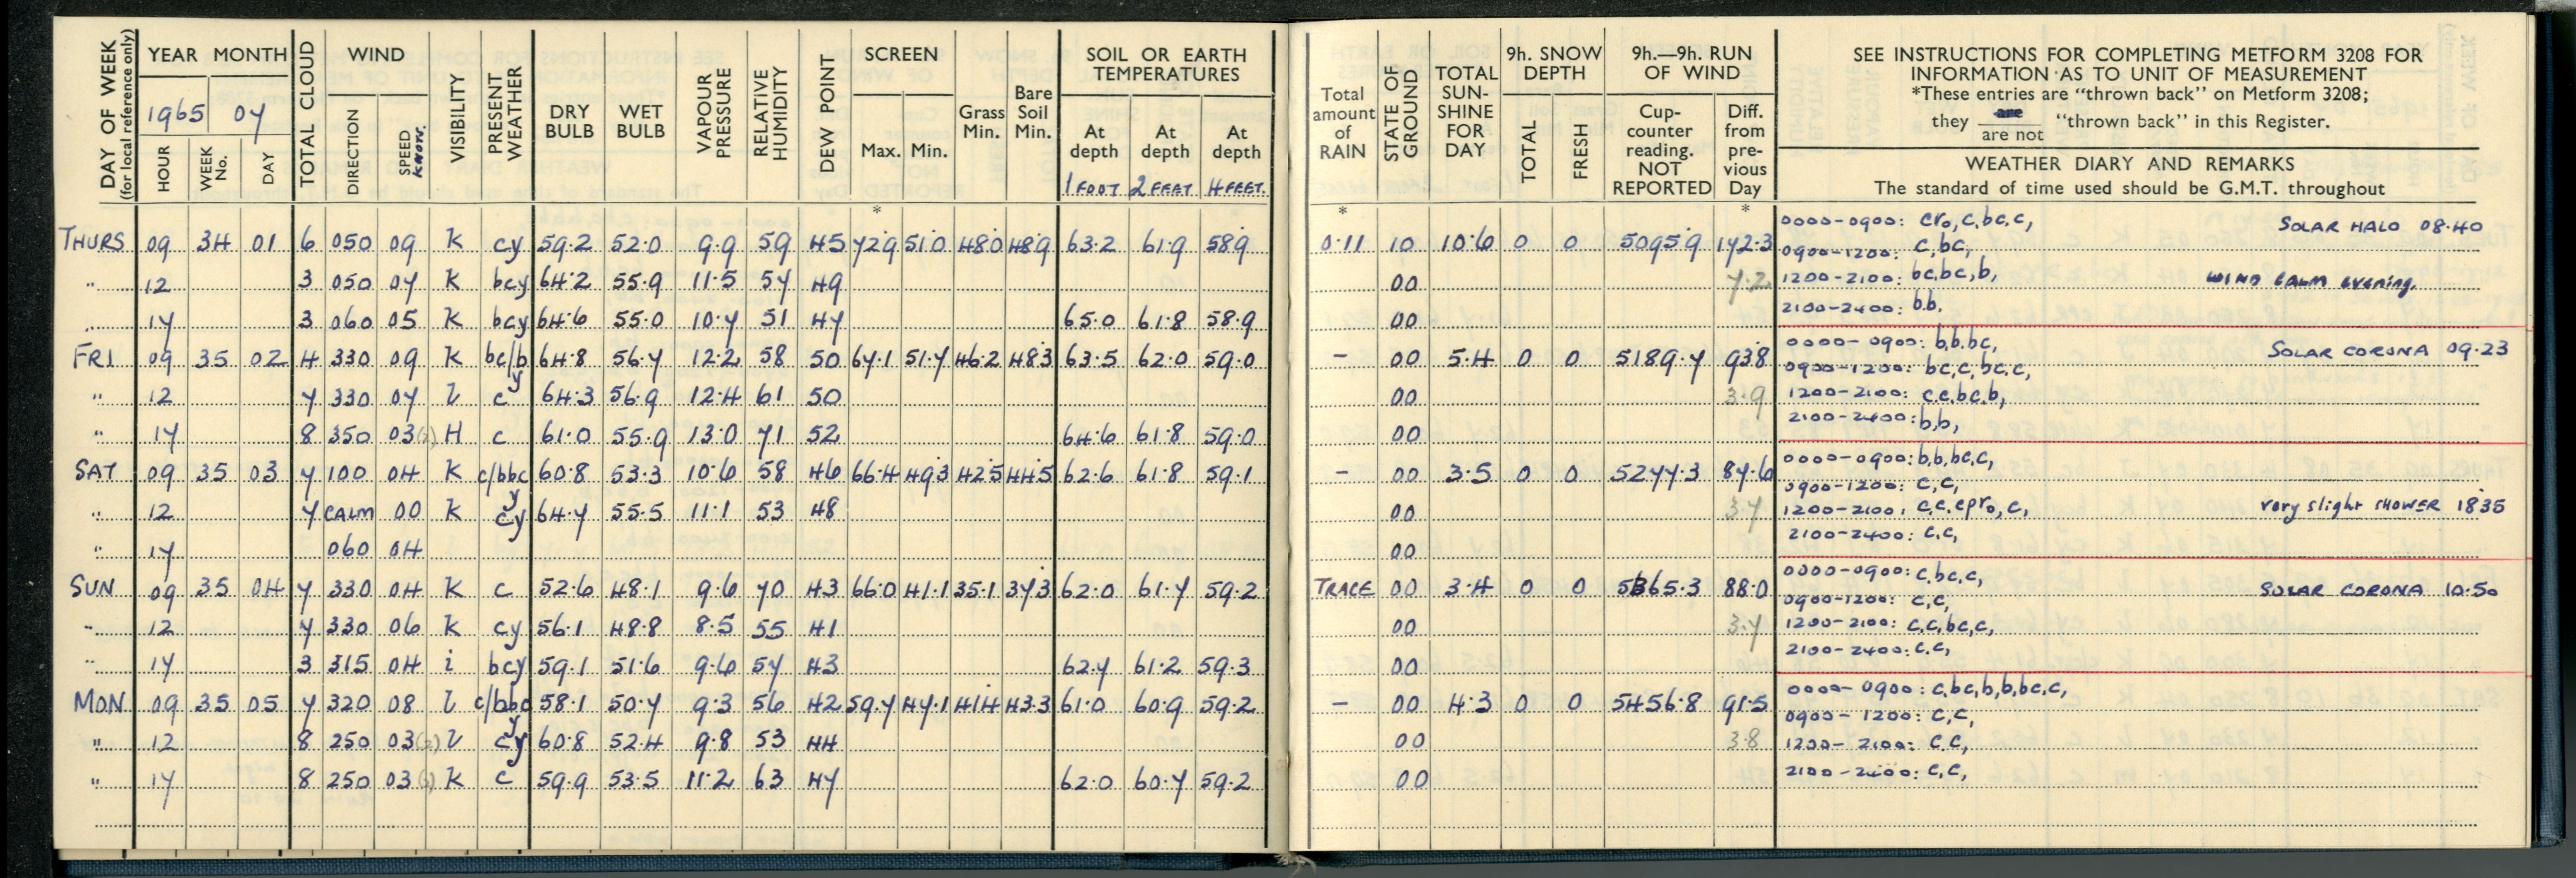 DAY OF WEEK (for local reference only)
YEAR MONTH
1965 07
HOUR WEEK No. DAY
TOTAL CLOUD
WIND
DIRECTION SPEED KNOTS.
VISIBILITY
PRESENT WEATHER
DRY BULB
WET BULB
VAPOUR PRESSURE
RELATIVE HUMIDITY
DEW POINT
SCREEN
Max. Min.
Grass Min.
Bare Soil Min.
SOIL OR EARTH TEMPERATURES
At depth At depth At depth
1 FOOT 2 FEET 4 FEET.
Total amount of RAIN
STATE OF GROUND
TOTAL SUN-SHINE FOR DAY
9h. SNOW DEPTH
TOTAL FRESH
9h.—9h. RUN OF WIND
Cup-counter reading. NOT REPORTED
Diff. from pre-vious Day
SEE INSTRUCTIONS FOR COMPLETING METFORM 3208 FOR
INFORMATION AS TO UNIT OF MEASUREMENT
*These entries are "thrown back" on Metform 3208;
they are / are not "thrown back" in this Register.
WEATHER DIARY AND REMARKS
The standard of time used should be G.M.T. throughout
* * *
THURS 09 34 01 6 050 09 K cy 59.2 52.0 9.9 59 45 72.9 51.0 48.0 48.9 63.2 61.9 58.9 0.11 10 10.6 0 0 5095.9 172.3 0000-0900: cro,c,bc,c, SOLAR HALO 08.40
0900-1200: c,bc,
" 12 3 050 07 K bcy 64.2 55.9 11.5 57 49 00 7.2 1200-2100: bc,bc,b, WIND CALM evening.
" 17 3 060 05 K bcy 64.6 55.0 10.7 51 47 65.0 61.8 58.9 00 2100-2400: b.b.
FRI 09 35 02 4 330 09 K bc/b y 64.8 56.7 12.2 58 50 67.1 51.7 46.2 48.3 63.5 62.0 59.0 - 00 5.4 0 0 5189.7 93.8 0000-0900: b,b.bc, SOLAR CORONA 09.23
0900-1200: bc,c,bc,c,
" 12 7 330 07 l c 64.3 56.9 12.4 61 50 00 3.9 1200-2100: c.c.bc.b,
" 17 8 350 03 (2) H c 61.0 55.9 13.0 71 52 64.6 61.8 59.0 00 2100-2400: b,b,
SAT 09 35 03 7 100 04 K c/bbc y 60.8 53.3 10.6 58 46 66.4 49.3 42.5 44.5 62.6 61.8 59.1 - 00 3.5 0 0 5277.3 87.6 0000-0900: b,b,bc,c,
0900-1200: c,c,
" 12 7 CALM 00 K cy 64.7 55.5 11.1 53 48 00 3.7 1200-2100: c,c.cpro,c, very slight SHOWER 1835
" 17 060 04 00 2100-2400: c.c,
SUN 09 35 04 7 330 04 K c 52.6 48.1 9.6 70 43 66.0 41.1 35.1 37.3 62.0 61.7 59.2 TRACE 00 3.4 0 0 5365.3 88.0 0000-0900: c,bc,c, SOLAR CORONA 10.50
0900-1200: c,c,
" 12 7 330 06 K cy 56.1 48.8 8.5 55 41 00 3.7 1200-2100: c,c,bc,c,
" 17 3 315 04 i bcy 59.1 51.6 9.6 57 43 62.7 61.2 59.3 00 2100-2400: c.c,
MON 09 35 05 7 320 08 l c/bbc y 58.1 50.7 9.3 56 42 59.7 47.1 41.4 43.3 61.0 60.9 59.2 - 00 4.3 0 0 5456.8 91.5 0000-0900: c,bc,b,b,bc,c,
0900-1200: c,c,
" 12 8 250 03 (2) l cy 60.8 52.4 9.8 53 44 00 3.8 1200-2100: c.c,
" 17 8 250 03 K c 59.9 53.5 11.2 63 47 62.0 60.7 59.2 00 2100-2400: c,c,